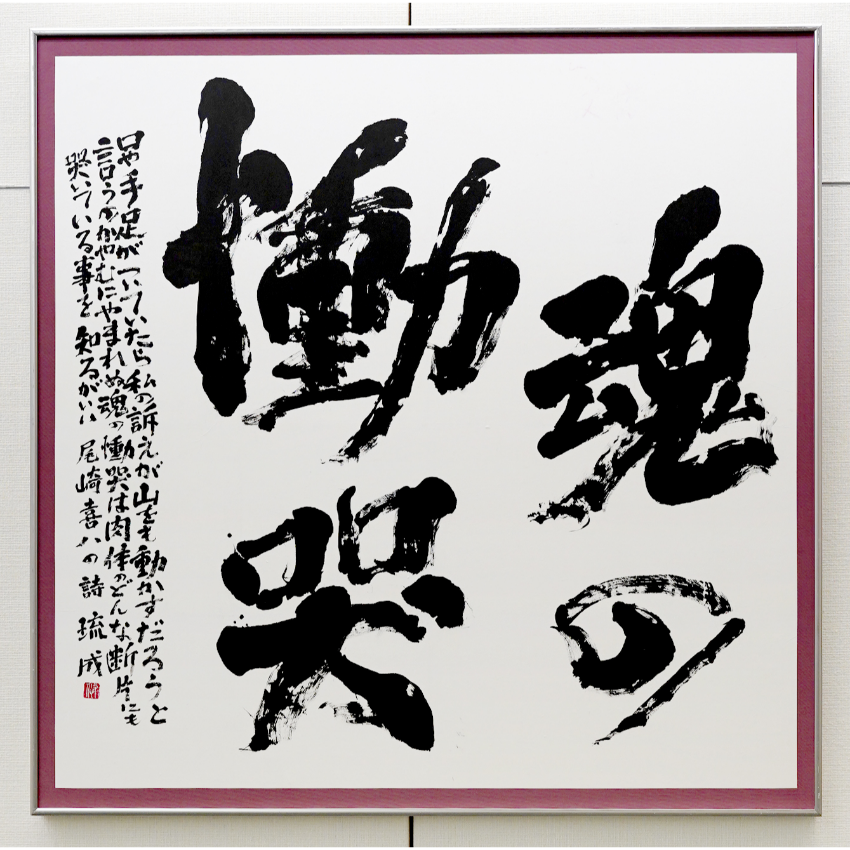 魂の
慟哭
口や手足がついていたら私の訴えが山をも動かすだろうと
言うのかやむにやまれぬ魂の慟哭は肉体のどんな断片にも
哭いている事を知るがいい 尾崎喜八の詩 琉成